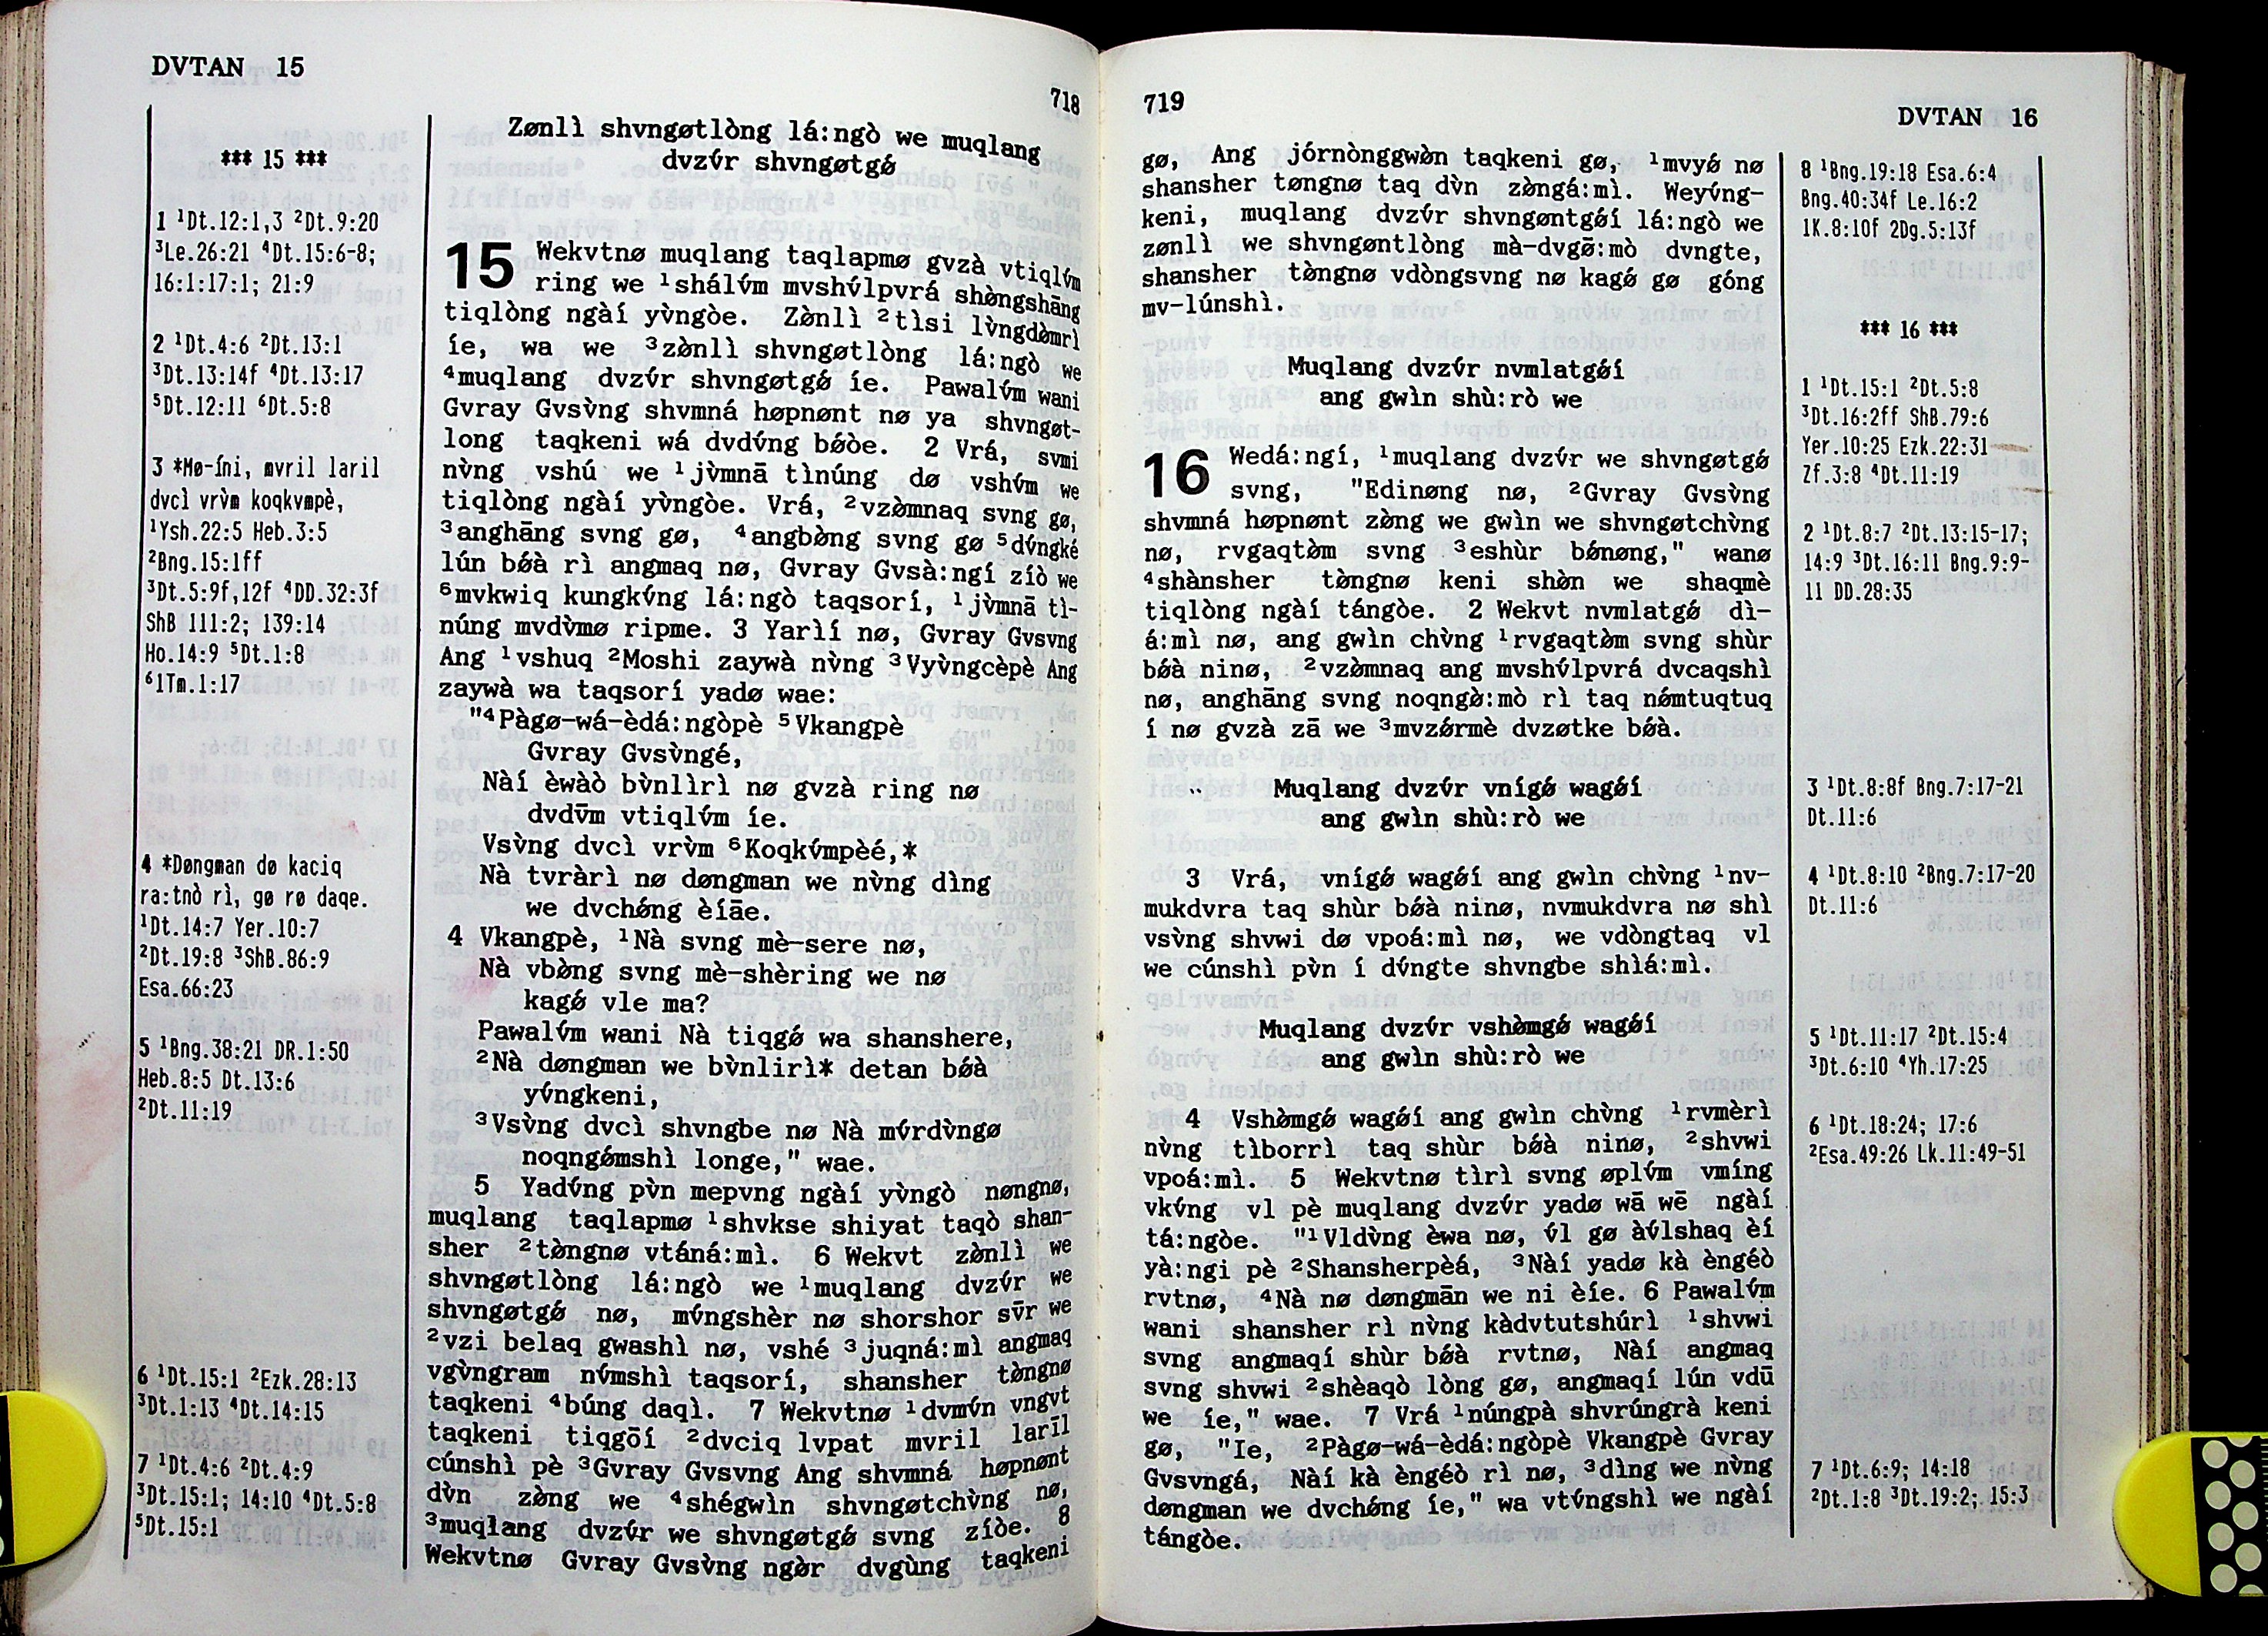 DVTAN 15
718
*** 15 ***
1 ¹Dt.12:1,3 ²Dt.9:20
³Le.26:21 ⁴Dt.15:6-8;
16:1:17:1; 21:9
2 ¹Dt.4:6 ²Dt.13:1
³Dt.13:14f ⁴Dt.13:17
⁵Dt.12:11 ⁶Dt.5:8
3 *Mø-íni, mvril laril
dvcì vrv̀m koqkvmpè,
¹Ysh.22:5 Heb.3:5
²Bng.15:1ff
³Dt.5:9f,12f ⁴DD.32:3f
ShB 111:2; 139:14
Ho.14:9 ⁵Dt.1:8
⁶1Tm.1:17
4 *Døngman dø kaciq
ra:tnò rì, gø rø daqe.
¹Dt.14:7 Yer.10:7
²Dt.19:8 ³ShB.86:9
Esa.66:23
5 ¹Bng.38:21 DR.1:50
Heb.8:5 Dt.13:6
²Dt.11:19
6 ¹Dt.15:1 ²Ezk.28:13
³Dt.1:13 ⁴Dt.14:15
7 ¹Dt.4:6 ²Dt.4:9
³Dt.15:1; 14:10 ⁴Dt.5:8
⁵Dt.15:1
Zønlì shvngøtlòng lá:ngò we muqlang
dvzv́r shvngøtgǿ
15 Wekvtnø muqlang taqlapmø gvzà vtiqlv́m
ring we ¹shálv́m mvshv́lpvrá shø̀ngshāng
tiqlòng ngàí yv̀ngòe. Zø̀nlì ²tìsi lv̀ngdø̀mrì
íe, wa we ³zø̀nlì shvngøtlòng lá:ngò we
⁴muqlang dvzv́r shvngøtgǿ íe. Pawalv́m wani
Gvray Gvsv̀ng shvmná høpnønt nø ya shvngøt-
long taqkeni wá dvdv́ng bǿòe. 2 Vrá, svmi
nv̀ng vshú we ¹jv̀mnā tìnúng dø vshv́m we
tiqlòng ngàí yv̀ngòe. Vrá, ²vzø̀mnaq svng gø,
³anghāng svng gø, ⁴angbø̀ng svng gø ⁵dv́ngké
lún bǿà rì angmaq nø, Gvray Gvsà:ngí zíò we
⁶mvkwiq kungkv́ng lá:ngò taqsorí, ¹jv̀mnā tì-
núng mvdv̀mø ripme. 3 Yarìí nø, Gvray Gvsvng
Ang ¹vshuq ²Moshi zaywà nv̀ng ³Vyv̀ngcèpè Ang
zaywà wa taqsorí yadø wae:
"⁴Pàgø-wá-èdá:ngòpè ⁵Vkangpè
Gvray Gvsv̀ngé,
Nàí èwàò bv̀nlìrì nø gvzà ring nø
dvdv̄m vtiqlv́m íe.
Vsv̀ng dvcì vrv̀m ⁶Koqkv́mpèé,*
Nà tvràrì nø døngman we nv̀ng dìng
we dvchǿng èíāe.
4 Vkangpè, ¹Nà svng mè-sere nø,
Nà vbø̀ng svng mè-shèring we nø
kagǿ vle ma?
Pawalv́m wani Nà tiqgǿ wa shanshere,
²Nà døngman we bv̀nlirì* detan bǿà
yv́ngkeni,
³Vsv̀ng dvcì shvngbe nø Nà mv́rdv̀ngø
noqngǿmshì longe," wae.
5 Yadv́ng pv̀n mepvng ngàí yv̀ngò nøngnø,
muqlang taqlapmø ¹shvkse shiyat taqò shan-
sher ²tø̀ngnø vtáná:mì. 6 Wekvt zø̀nlì we
shvngøtlòng lá:ngò we ¹muqlang dvzv́r we
shvngøtgǿ nø, mv́ngshèr nø shorshor sv̄r we
²vzi belaq gwashì nø, vshé ³juqná:mì angmaq
vgv̀ngram nv́mshì taqsorí, shansher tø̀ngnø
taqkeni ⁴búng daqì. 7 Wekvtnø ¹dvmv́n vngvt
taqkeni tiqgōí ²dvciq lvpat mvril larīl
cúnshì pè ³Gvray Gvsvng Ang shvmná høpnønt
dv̀n zø̀ng we ⁴shégwìn shvngøtchv̀ng nø,
³muqlang dvzv́r we shvngøtgǿ svng zíòe. 8
Wekvtnø Gvray Gvsv̀ng ngø̀r dvgùng taqkeni
719
DVTAN 16
gø, Ang jórnònggwø̀n taqkeni gø, ¹mvyǿ nø
shansher tøngnø taq dv̀n zø̀ngá:mì. Weyv́ng-
keni, muqlang dvzv́r shvngøntgǿí lá:ngò we
zønlì we shvngøntlòng mà-dvgø̄:mò dvngte,
shansher tø̀ngnø vdòngsvng nø kagǿ gø góng
mv-lúnshì.
Muqlang dvzv́r nvmlatgǿí
ang gwìn shù:rò we
16 Wedá:ngí, ¹muqlang dvzv́r we shvngøtgǿ
svng, "Edinøng nø, ²Gvray Gvsv̀ng
shvmná høpnønt zø̀ng we gwìn we shvngøtchv̀ng
nø, rvgaqtø̀m svng ³eshùr bǿnøng," wanø
⁴shànsher tø̀ngnø keni shø̀n we shaqmè
tiqlòng ngàí tángòe. 2 Wekvt nvmlatgǿ dì-
á:mì nø, ang gwìn chv̀ng ¹rvgaqtø̀m svng shùr
bǿà ninø, ²vzø̀mnaq ang mvshv́lpvrá dvcaqshì
nø, anghāng svng noqngø̀:mò rì taq nǿmtuqtuq
í nø gvzà zā we ³mvzǿrmè dvzøtke bǿà.
Muqlang dvzv́r vnígǿ wagǿí
ang gwìn shù:rò we
3 Vrá, vnígǿ wagǿí ang gwìn chv̀ng ¹nv-
mukdvra taq shùr bǿà ninø, nvmukdvra nø shì
vsv̀ng shvwi dø vpoá:mì nø, we vdòngtaq vl
we cúnshì pv̀n í dv́ngte shvngbe shìá:mì.
Muqlang dvzv́r vshø̀mgǿ wagǿí
ang gwìn shù:rò we
4 Vshø̀mgǿ wagǿí ang gwìn chv̀ng ¹rvmèrì
nv̀ng tìborrì taq shùr bǿà ninø, ²shvwi
vpoá:mì. 5 Wekvtnø tìrì svng øplv́m vmíng
vkv́ng vl pè muqlang dvzv́r yadø wā wē ngàí
tá:ngòe. "¹Vldv̀ng èwa nø, v́l gø àv́lshaq èí
yà:ngi pè ²Shansherpèá, ³Nàí yadø kà èngéò
rvtnø, ⁴Nà nø døngmān we ni èíe. 6 Pawalv́m
wani shansher rì nv̀ng kàdvtutshúrì ¹shvwi
svng angmaqí shùr bǿà rvtnø, Nàí angmaq
svng shvwi ²shèaqò lòng gø, angmaqí lún vdū
we íe," wae. 7 Vrá ¹núngpà shvrúngrà keni
gø, "Ie, ²Pàgø-wá-èdá:ngòpè Vkangpè Gvray
Gvsvngá, Nàí kà èngéò rì nø, ³dìng we nv̀ng
døngman we dvchǿng íe," wa vtv́ngshì we ngàí
tángòe.
8 ¹Bng.19:18 Esa.6:4
Bng.40:34f Le.16:2
1K.8:10f 2Dg.5:13f
*** 16 ***
1 ¹Dt.15:1 ²Dt.5:8
³Dt.16:2ff ShB.79:6
Yer.10:25 Ezk.22:31
Zf.3:8 ⁴Dt.11:19
2 ¹Dt.8:7 ²Dt.13:15-17;
14:9 ³Dt.16:11 Bng.9:9-
11 DD.28:35
3 ¹Dt.8:8f Bng.7:17-21
Dt.11:6
4 ¹Dt.8:10 ²Bng.7:17-20
Dt.11:6
5 ¹Dt.11:17 ²Dt.15:4
³Dt.6:10 ⁴Yh.17:25
6 ¹Dt.18:24; 17:6
²Esa.49:26 Lk.11:49-51
7 ¹Dt.6:9; 14:18
²Dt.1:8 ³Dt.19:2; 15:3